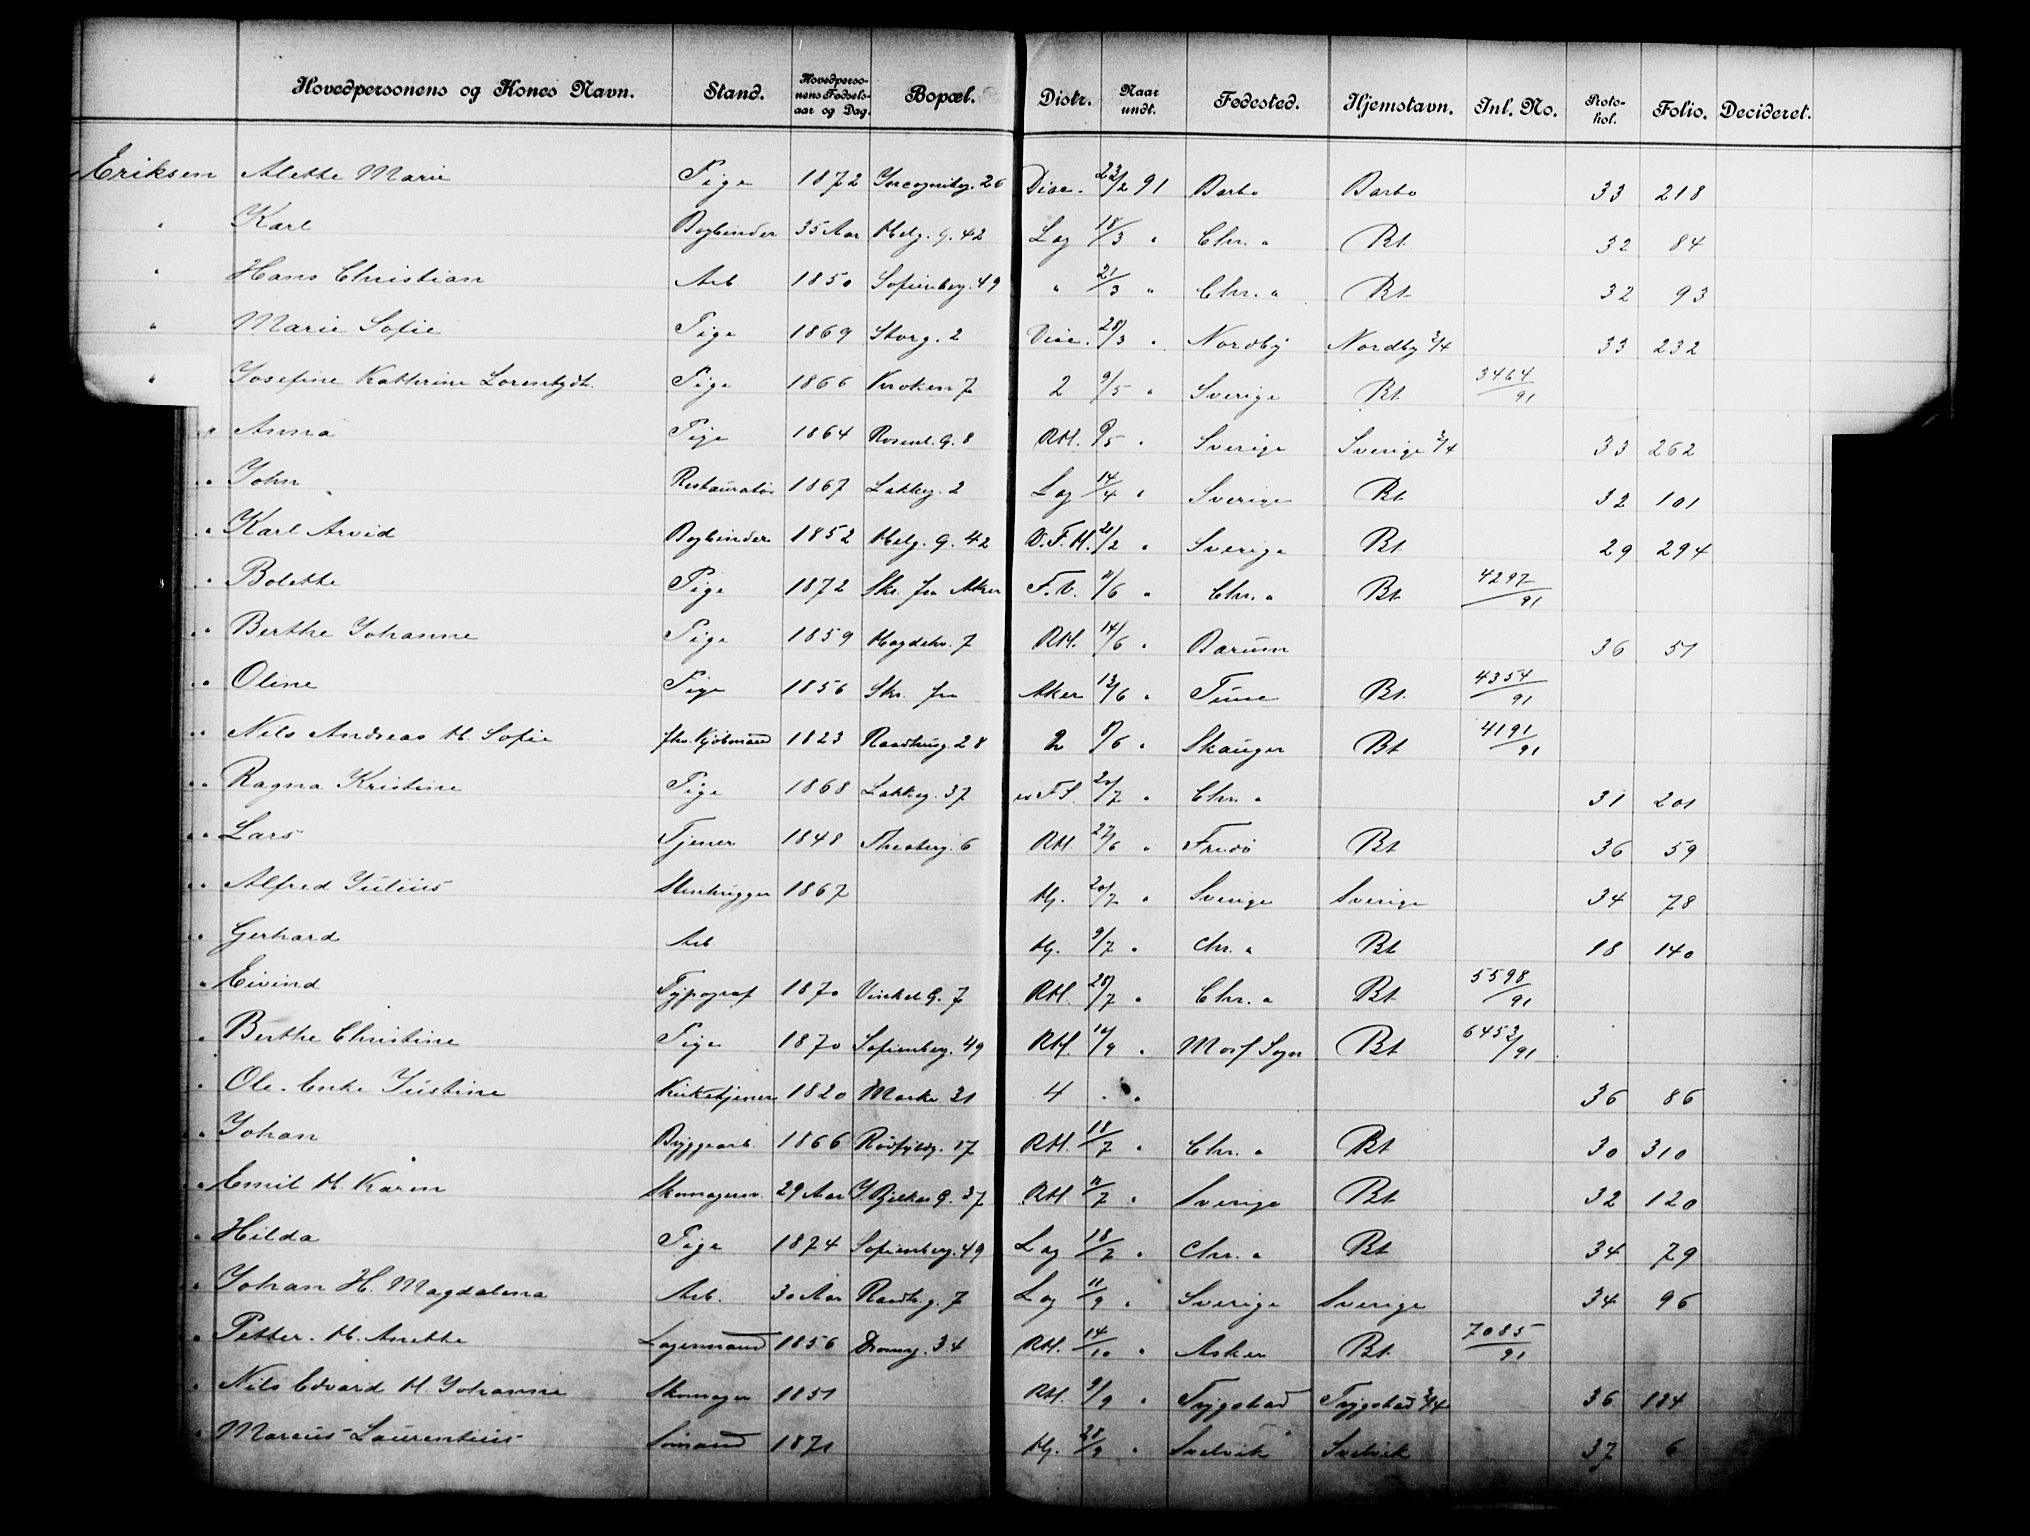 Hovedpersonens og Kones Navn. Stand. Hovedpersonens Fødselsaar og Dag. Bopæl. Distr. Naar undt. Fødested. Hjemstavn. Inl. No. Protokol. Folio. Decideret.
Eriksen Alette Marie Pige 1872 Incognitog. 26 Diac. 23/2 91 Barbo Barbo 33 218
" Karl Bogbinder 35 Aar Helg. G. 42 Lag 18/3 " Chr. a Bt. 32 84
" Hans Christian Arb 1850 Sofienbeg. 49 " 21/3 " Chr. a Bt. 32 93
" Marie Sofie Pige 1869 Storg. 2 Diac. 28/3 " Nordby Nordby 3/4 33 232
" Josefine Kathrine Pige 1866 Kroken 7 2 9/5 " Sverige Bt. 3464/91
" Anna Pige 1864 Rosenl. G. 8 RH. 9/5 " Sverige Sverige 3/4 33 262
" John Restauratør 1867 Lakkeg. 2 Lag 14/4 " Sverige Bt 32 101
" Karl Arvid Bogbinder 1852 Helg. G. 42 V.F.H. 2/2 " Sverige Bt 29 294
" Bolette Pige 1872 Skr. fra Aker F.V. 11/6 " Chr. a Bt 4297/91
" Berthe Johanne Pige 1859 Magdelv. 7 RH. 14/6 " Barum 36 51
" Oline Pige 1856 Skr. fra Aker 13/6 " Tune Bt. 4354/91
" Nils Andreas H. Sofie fhv. Kjøbmand 1823 Raadhusg. 28 2 9/6 " Skauger Bt 4191/91
" Ragna Kristine Pige 1868 Lakkeg. 37 20/7 " Chr. a 31 201
" Lars Tjener 1848 Theaterg. 6 RH. 27/6 " Bt 36 59
" Alfred Julius Stenhugger 1867 Hj. 20/7 " Sverige Sverige 34 78
" Gerhard Arb Hj. 9/7 " Chr. a Bt 18 140
" Eivind Typograf 1870 Vinkel G. 7 RH. 28/7 " Chr. a Bt 5598/91
" Berthe Christine Pige 1870 Sofienbeg. 49 RH. 10/9 " Sogn Bt 6453/91
" Ole. Enke Justine Kirketjener 1820 Markv. 31 4 " 36 86
" Johan Byggearb. 1866 Rødfyldg. 17 RH. 18/7 " Chr. a Bt 30 310
" Emil H. Karen Skomagersv. 29 Aar J. Bjelkes G. 37 RH. 11/7 " Sverige Bt 32 120
" Hilda Pige 1874 Sofienbeg. 49 Lag 18/7 " Chr. a Bt 34 79
" Johan H. Magdalena Arb. 30 Aar Raadh.g. 7 Lag 11/9 " Sverige Sverige 34 96
" Petter. H. Anette Lagermand 1856 Dronng. 34 RH. 14/10 " Asker Bt. 7085/91
" Nils Edvard H Johanne Skomager 1851 RH. 9/9 " Trygstad Trygstad 3/4 36 134
" Marcus Laurentius Sømand 1871 Hj. 28/9 " Svelvik Svelvik 37 6